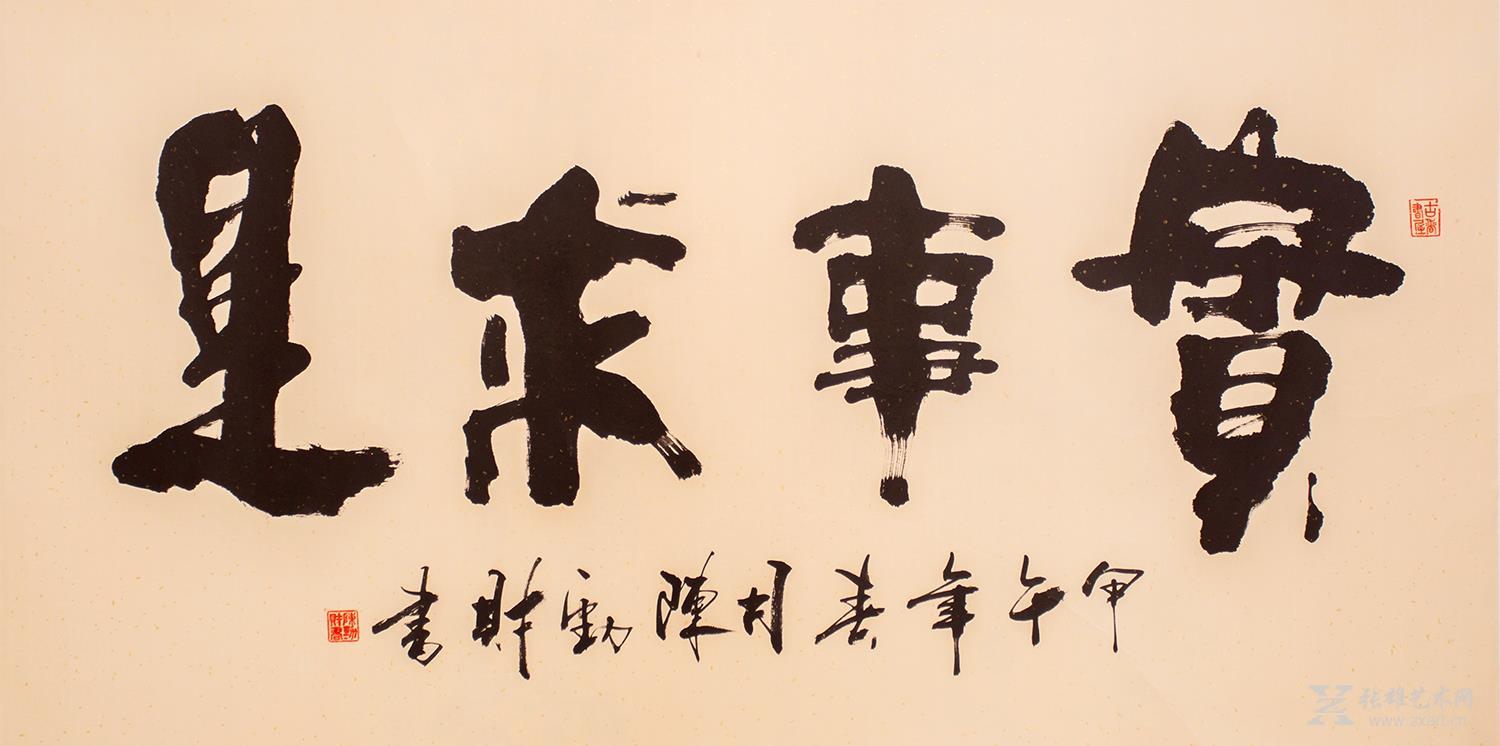 實事求是
甲午年春月陳勳財書
張雄艺术网
www.zxart.cn